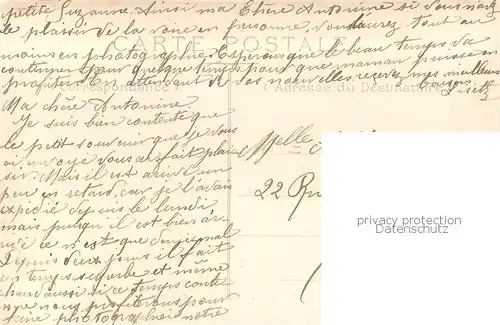 petite Suzanne. Ainsi ma Chère Antonine si vous n'avez
le plaisir de la voir en personne, vous l'aurez tout au
moins en photographie. Espérons que le beau temps va
continuer pour quelque temps pour que maman puisse en
profiter. En attendant de vos nouvelles recevez mes meilleurs
CARTE POSTALE
Correspondance
Adresse du Destinataire
Ma chère Antonine.
Je suis bien contente que
le petit souvenir que je vous
ai envoyé vous ait fait plai
sir. Mais il est arrivé un
peu en retard, car je l'avais
expédié depuis le lundi
mais puisqu'il est bien ar
rivé ce n'est que demi mal
Depuis deux jours il fait
un temps superbe et même
chaud aussi si ce temps conti
nue nous profiterons pour
faire photographier notre
Melle
22 Ru
privacy protection
Datenschutz